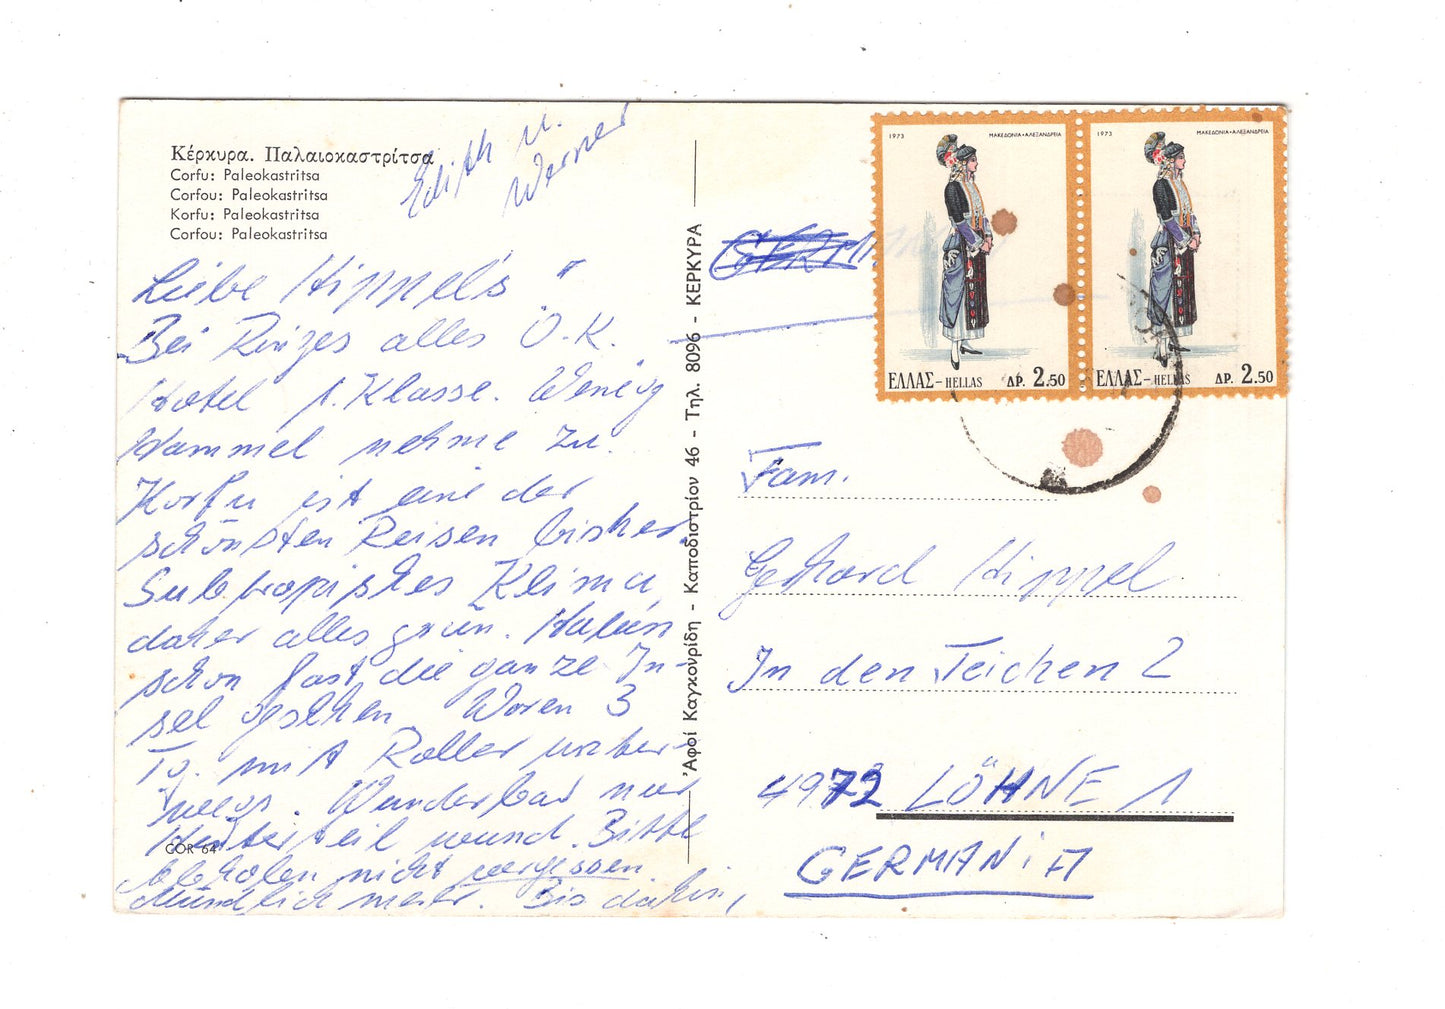 Κέρκυρα. Παλαιοκαστρίτσα
Corfu: Paleokastritsa
Corfou: Paleokastritsa
Korfu: Paleokastritsa
Corfou: Paleokastritsa
Edith u.
Werner
Liebe Hippel's
Bei Rinzes alles O.K.
Hotel 1. Klasse. Wenig
Hammel nehme zu.
Korfu ist eine der
schönsten Reisen bisher.
Subtropisches Klima,
daher alles grün. Haben
schon fast die ganze In-
sel gesehen. Waren 3
Tg. mit Roller unter-
wegs. Wunderbar nur
Hinterteil wund. Bitte
Abholen nicht vergessen.
Mündlich mehr. Bis dahin,
COR 64
Ἀφοί Καγκουρίδη - Καποδιστρίου 46 - Τηλ. 8096 - ΚΕΡΚΥΡΑ
1973 ΜΑΚΕΔΟΝΙΑ•ΑΛΕΞΑΝΔΡΕΙΑ
ΕΛΛΑΣ-HELLAS ΔΡ. 2.50
1973 ΜΑΚΕΔΟΝΙΑ•ΑΛΕΞΑΝΔΡΕΙΑ
ΕΛΛΑΣ-HELLAS ΔΡ. 2.50
Fam.
Gerhard Hippel
In den Teichen 2
4972 LÖHNE 1
GERMANiA